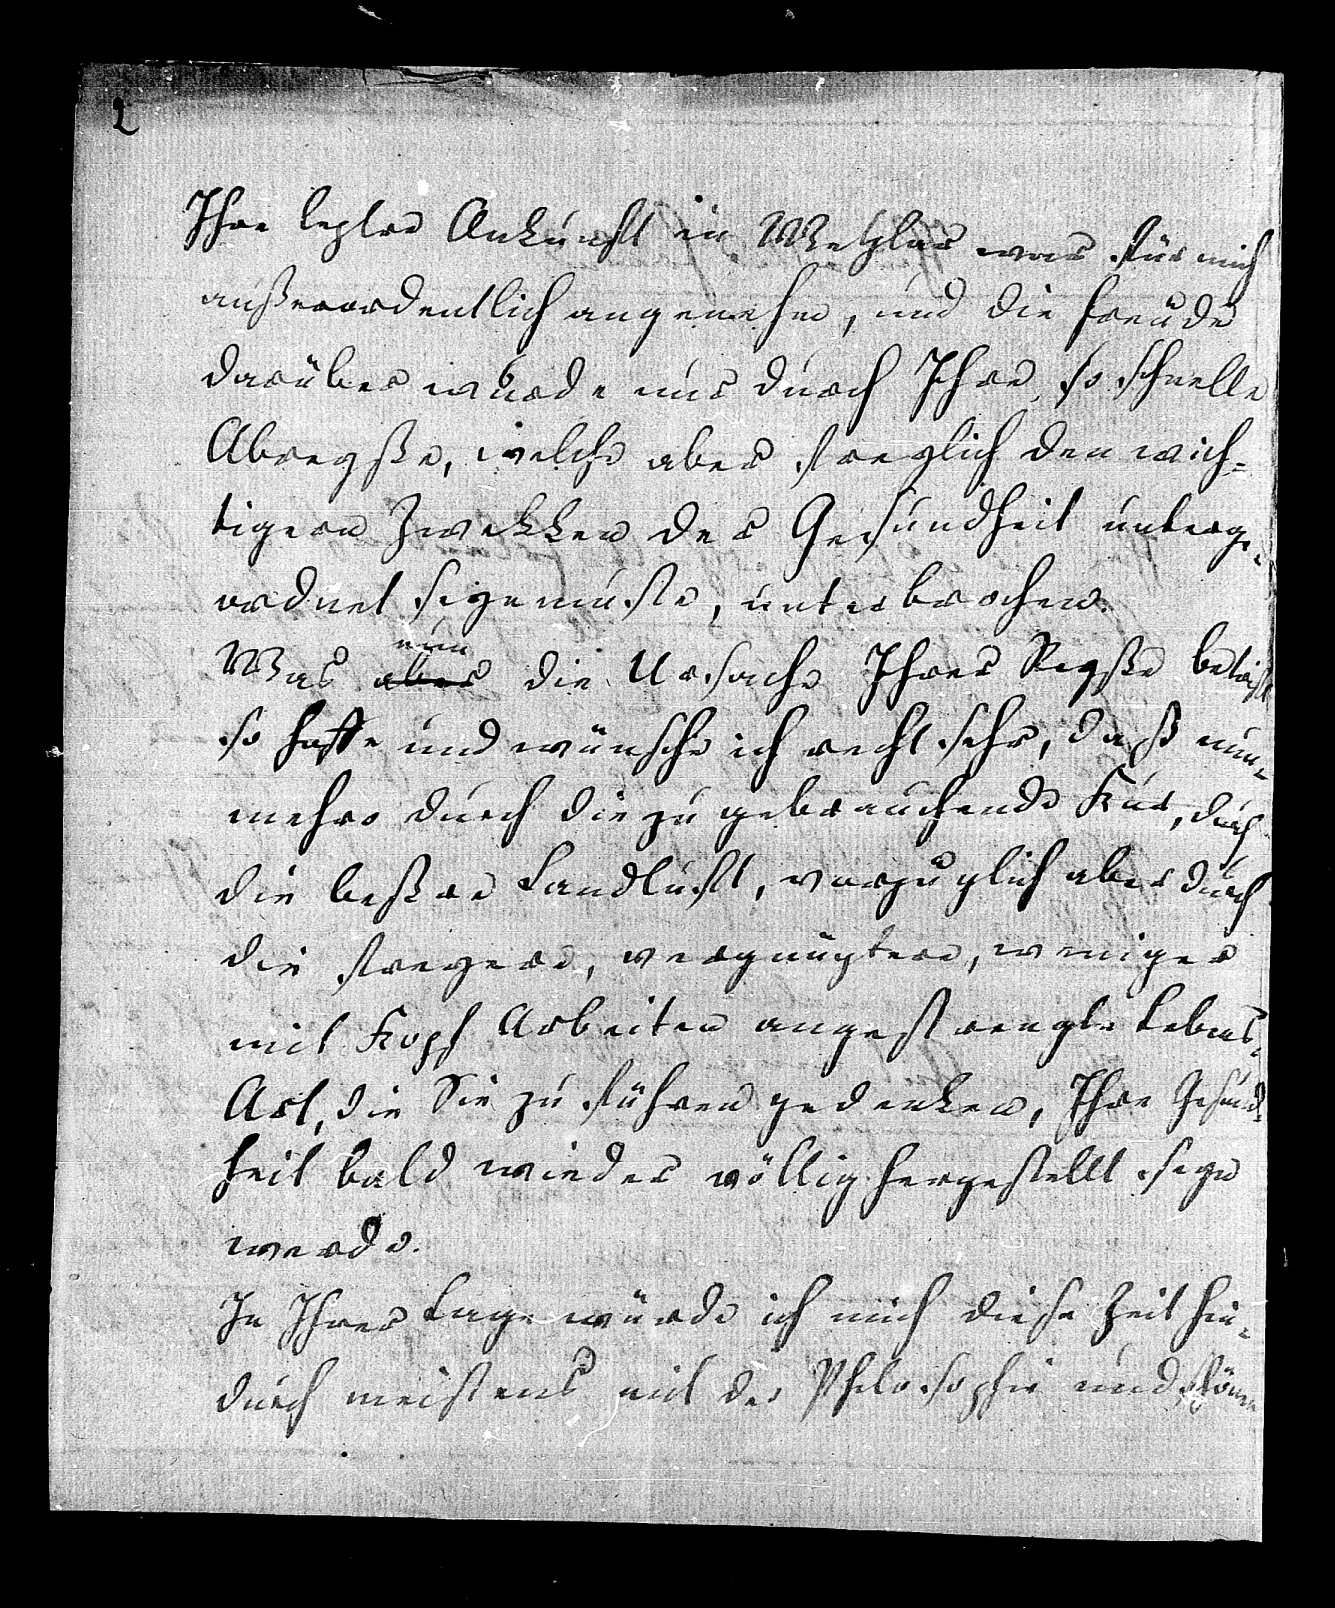 2
Ihre leztre Ankunft in Wetzlar war für mich
außerordentlich angenehm, und die Freude
darüber wurde nur durch Ihre so schnelle
Abreyße, welche aber freylich den wich-
tigern Zwekken der Gesundheit unterge-
ordnet seyn muste, unterbrochen.
nun
Was aber die Ursache Ihrer Reyße betrift
so hoffe und wünsche ich recht sehr, daß nun-
mehro durch die zu gebrauchende Kur, durch
die beßre Landluft, vorzüglich aber durch
die freyere, vergnügtere, weniger
mit Kopf Arbeiten angestrengte Lebens-
Art, die Sie zu führen gedenken, Ihre Gesund-
heit bald wieder völlig hergestellt seyn
werde.
In Ihrer Lage würde ich mich diese Zeit hin-
durch meistens mit der Philosophie und schönen